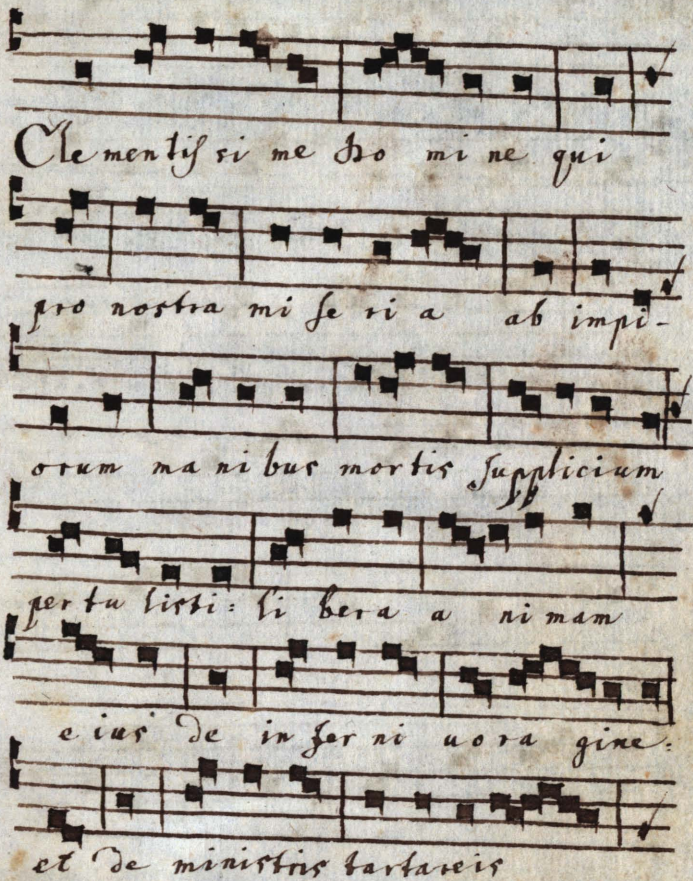 Clementissime Domine qui
pro nostra miseria ab impi-
orum manibus mortis supplicium
pertulisti: libera animam
eius de inferni uoragine:
et de ministris tartareis